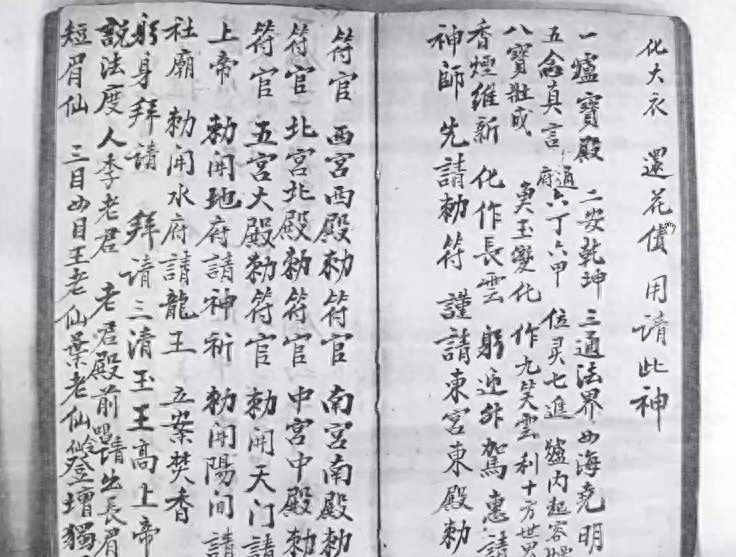 化大衣 還花債 用請此神
一爐寶殿 二安乾坤 三通法界 四海堯明
五念真言 通府六丁六甲 位灵七進 爐内起容
八寶壯成 奥玉變化 作九笑雲 利十方世界
香煙維新 化作長雲 躬迎彿駕 惠請
神師 先請勅符 謹請東宮東殿勅
符官 西宮西殿勅符官 南宮南殿勅
符官 北宮北殿勅符官 中宮中殿勅
符官 五宮大殿勅符官 勅開天门請
上帝 勅開地府請神祈 勅開陽间請
社廟 勅開水府請龍王 立案焚香
躬身拜請 拜請三清玉王高上帝
說法度人李老君 老君殿前唱請出長眉
短眉仙 三目四目王老仙葉老仙 登壇獨